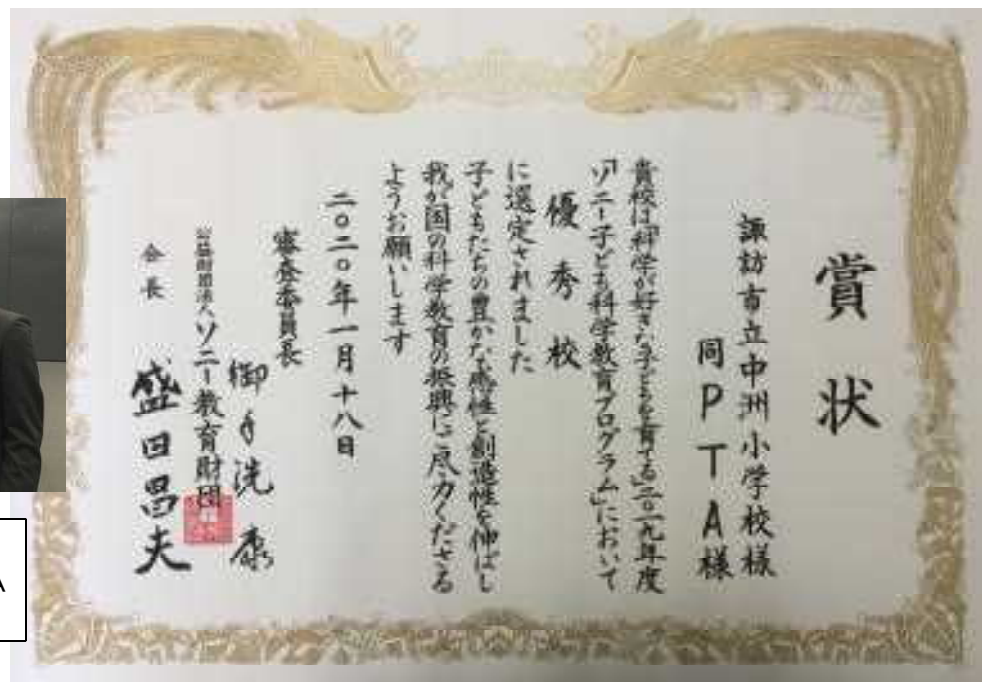 賞状
諏訪市立中洲小学校様
同PTA様
貴校は「科学が好きな子どもを育てる」二〇一九年度
「ソニー子ども科学教育プログラム」において
優秀校
に選定されました
子どもたちの豊かな感性と創造性を伸ばし
我が国の科学教育の振興にご尽力くださる
ようお願いします
二〇二〇年一月十八日
審査委員長
御手洗康
公益財団法人ソニー教育財団
会長 盛田昌夫
A